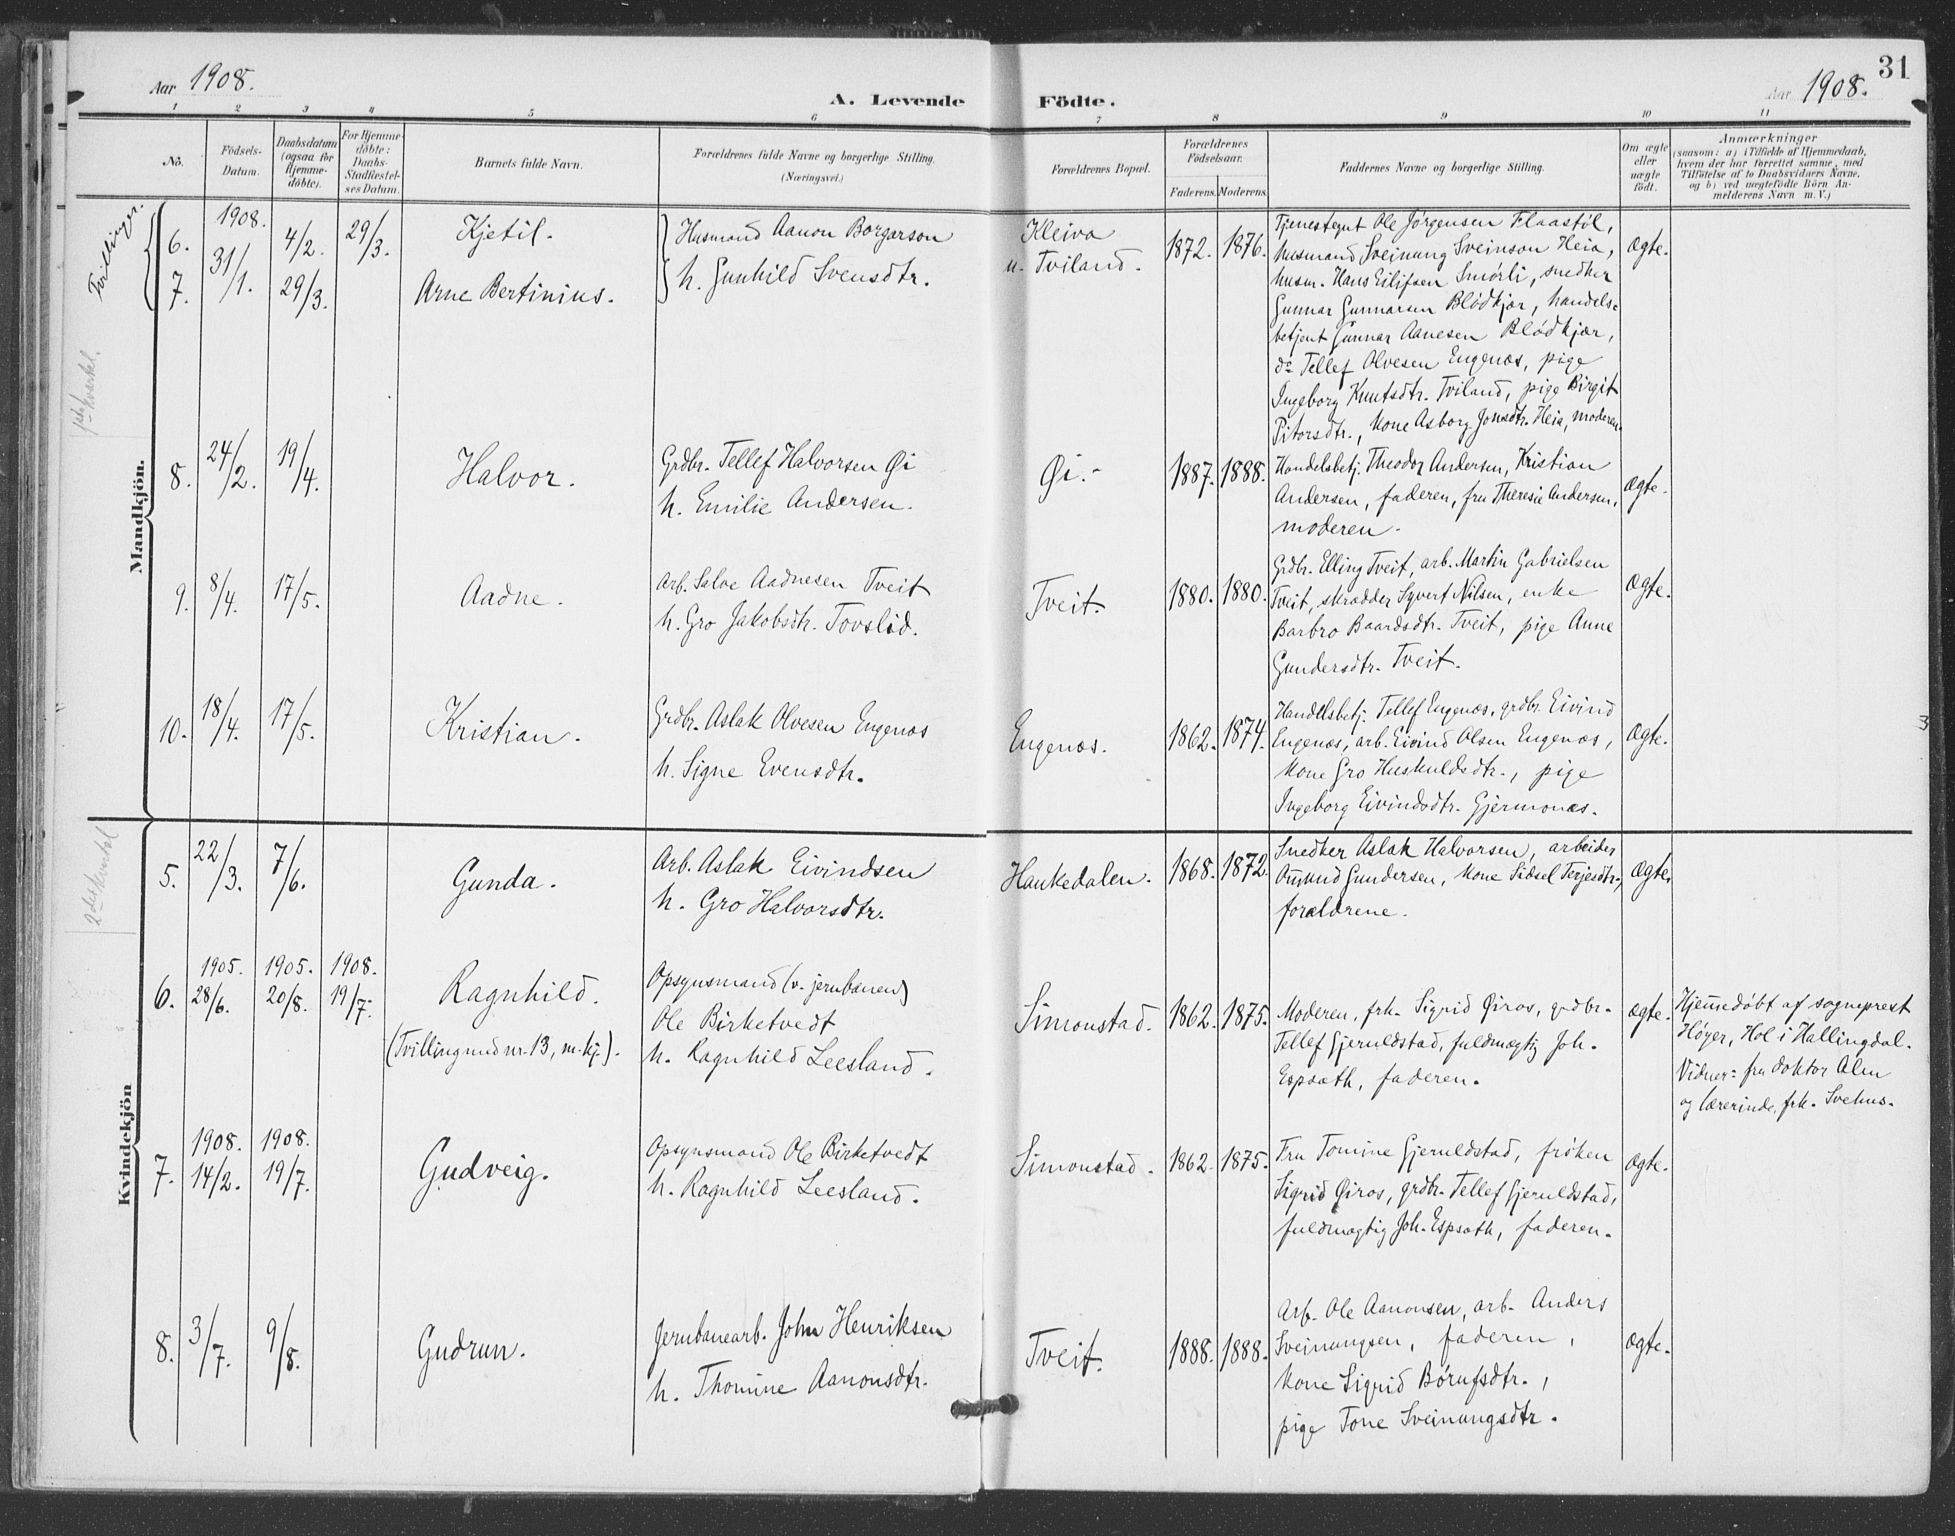 Aar 1908.
A. Levende Födte.
Aar 1908.
31
1 2 3 4 5 6 7 8 9 10 11
No.
Födsels-Datum.
Daabsdatum (ogsaa for Hjemme-döbte).
For Hjemme-döbte: Daabs-Stadfæstel-ses Datum.
Barnets fulde Navn.
Forældrenes fulde Navne og borgerlige Stilling.
(Næringsvei.)
Forældrenes Bopæl.
Forældrenes Födselsaar.
Faderens. Moderens.
Faddernes Navne og borgerlige Stilling.
Om ægte eller uægte födt.
Anmærkninger
(saasom: a) i Tilfælde af Hjemmedaab,
hvem der har forrettet samme, med
Tilföielse af to Daabsvidners Navne,
og b) ved uægtefödte Börn An-
melderens Navn m. V.)
Mandkjön.
Tvillinger.
1ste kvartal.
6. 1908. 31/1. 4/2. 29/3. Kjetil.
7. 29/3. Arne Bertinius.
Husmand Aanon Borgarson
h. Gunhild Svensdtr.
Kleiva
u. Tviland.
1872. 1876.
Tjenestegut Ole Jørgensen Flaastøl,
husmand Sveinung Sveinson Heia,
husm. Hans Eilifsen Smørli, snedker
Gunnar Gunnarsen Blødkjær, handels-
betjent Gunnar Aanesen Blødkjær,
do Tellef Olvesen Engenæs, pige
Ingeborg Knutsdtr. Tviland, pige Birgit
Pitorsdtr., kone Asborg Jonsdtr. Heia, moderen.
Ægte.
8. 24/2. 19/4. Halvor.
Grdbr. Tellef Halvorsen Øi
h. Emilie Andersen.
Øi.-
1887. 1888.
Handelsbetj. Theodor Andersen, Kristian
Andersen, faderen, fru Theresie Andersen,
moderen.
Ægte.
9. 8/4. 17/5. Aadne.
Arb. Salve Aadnesen Tveit
h. Gro Jakobsdtr. Tovslid.
Tveit.
1880. 1880.
Grdbr. Elling Tveit, arb. Martin Gabrielsen
Tveit, skrædder Syvert Nilsen, enke
Barbro Baardsdtr. Tveit, pige Anne
Gundersdtr. Tveit.
Ægte.
10. 18/4. 17/5. Kristian.
Grdbr. Aslak Olvesen Engenæs
h. Signe Evensdtr.
Engenæs.
1862. 1874.
Handelsbetj. Tellef Engenæs, grdbr. Eivind
Engenæs, arb. Eivind Olsen Engenæs,
kone Gro Huskuldsdtr., pige
Ingeborg Eivindsdtr. Gjermonæs.
Ægte.
3
Kvindekjön
5. 22/3. 7/6. Gunda.
Arb. Aslak Eivindsen
h. Gro Halvorsdtr.
Haukedalen.
1868. 1872.
Snedker Aslak Halvorsen, arbeider
Omund Gundersen, kone Sidsel Terjesdtr.,
forældrene.
Ægte.
6. 1905. 28/6. 1905. 20/8. 1908. 19/7. Ragnhild.
(Tvilling med nr. 13, m.kj.).
Opsynsmand (v. jernbanen)
Ole Birketvedt
h. Ragnhild Leesland.
Simonstad.
1862. 1875.
Moderen, frk. Sigrid Øiros, grdbr.
Tellef Gjeruldstad, fuldmægtig Joh.
Espsæth, faderen.
Ægte.
Hjemmedøbt af sogneprest
Høyer, Hol i Hallingdal.
Vidner: fru doktor Alm
og lærerinde, frk. Svehus.
7. 1908. 14/2. 1908. 19/7. Gudveig.
Opsynsmand Ole Birketvedt
h. Ragnhild Leesland.
Simonstad.
1862. 1875.
Fru Tomine Gjeruldstad, frøken
Sigrid Øiros, grdbr. Tellef Gjeruldstad,
fuldmægtig Joh. Espsæth, faderen.
Ægte.
8. 3/7. 9/8. Gudrun.
Jernbanearb. John Henriksen
h. Thomine Aanonsdtr.
Tveit.
1888. 1888.
Arb. Ole Aanonsen, arb. Anders
Sveinungsen, faderen,
kone Sigrid Børufsdtr.,
pige Tone Sveinungsdtr.
Ægte.